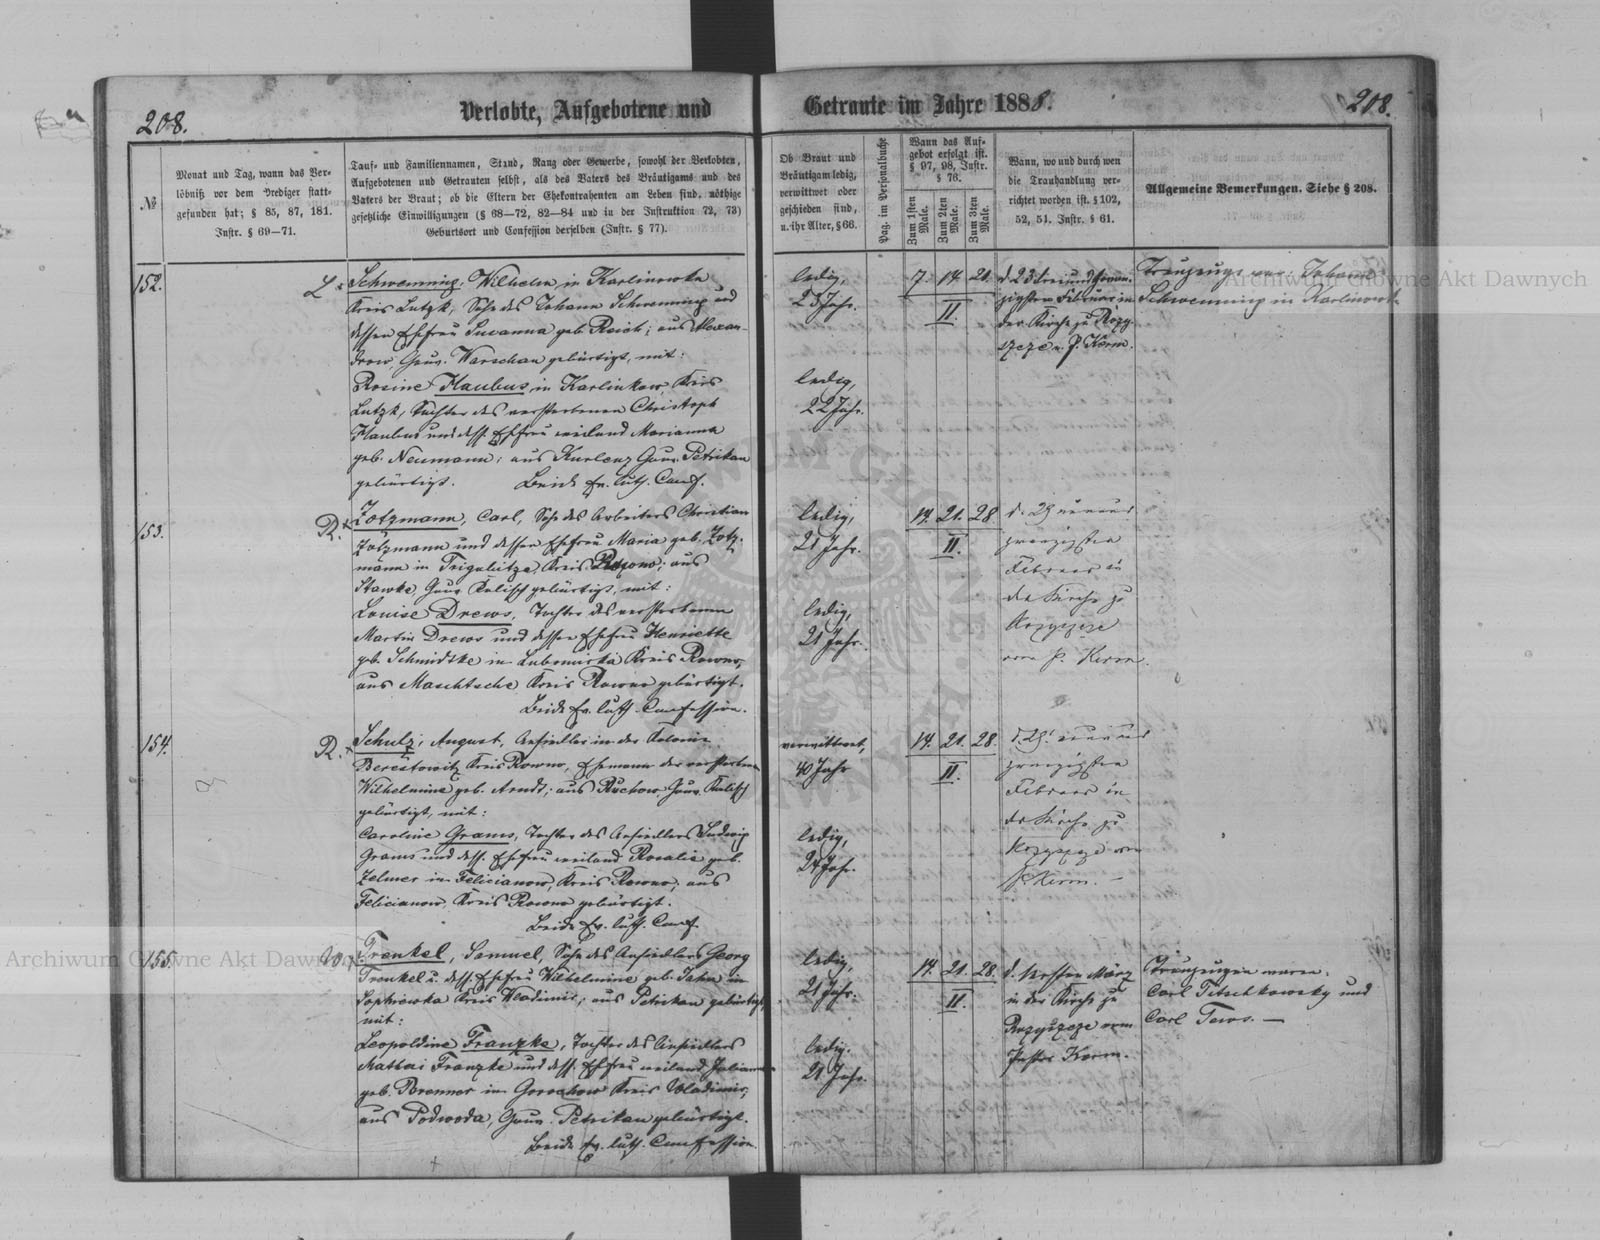 208.
Verlobte, Aufgebotene und
Getraute im Jahre 1888.
208.
№
Monat und Tag, wann das Ver-
löbniß vor dem Prediger statt-
gefunden hat; § 85, 87, 181.
Instr. § 69—71.
Tauf- und Familiennamen, Stand, Rang oder Gewerbe, sowohl der Verlobten,
Aufgebotenen und Getrauten selbst, als des Vaters des Bräutigams und des
Vaters der Braut; ob die Eltern der Ehekontrahenten am Leben sind, nöthige
gesetzliche Einwilligungen (§ 68—72, 82—84 und in der Instruktion 72, 73)
Geburtsort und Confession derselben (Instr. § 77).
Ob Braut und
Bräutigam ledig,
verwittwet oder
geschieden sind,
u. ihr Alter, § 66.
Pag. im Personalbuche
Wann das Auf-
gebot erfolgt ist.
§ 97, 98, Instr.
§ 76.
Zum 1sten Male.
Zum 2ten Male.
Zum 3ten Male.
Wann, wo und durch wen
die Trauhandlung ver-
richtet worden ist. § 102,
52, 51. Instr. § 61.
Allgemeine Bemerkungen. Siehe § 208.
152.
L.
Schwemming, Wilhelm, in Karlinowka
Kreis Lutzk, Sohn des Johann Schwemming und
dessen Ehefrau Susanna geb. Reich; aus Alexan-
drow, Gouv. Warschau gebürtigt, mit:
Rosine Flaubus in Karlinkow, Kreis
Lutzk, Tochter des verstorbenen Christoph
Flaubus und dess. Ehefrau weiland Marianna
geb. Neumann; aus Gouv. Petrikau
gebürtigt. Beide Ev. luth. Conf.
ledig,
23 Jahr.
ledig,
22 Jahr.
7. 14. 21.
II
d. 23 dreiundzwan-
zigsten Februar in
der Kirche zu Rozy-
szcze v. P. Kerm.
Trauzeuge war: Johann
Schwemming in Karlinowka
153.
R.
Zotzmann, Carl, Sohn des Arbeiters Christian
Zotzmann und dessen Ehefrau Maria geb. Zotz-
mann in Kreis Rowno; aus
Stawke, Gouv. Kalisch gebürtigt, mit:
Louise Drews, Tochter des verstorbenen
Martin Drews und dessen Ehefrau Henriette
geb. Schmidtke in Lubomirka Kreis Rowno,
aus Maschtsche Kreis Rowno gebürtigt.
Beide Ev. luth. Confession.
ledig,
21 Jahr.
ledig,
21 Jahr.
14. 21. 28
II.
d. 29 neunund
zwanzigsten
Februar in
der Kirche zu
Rozyszcze
vom P. Kerm.
154.
R.
Schulz, August, Ansiedler in der Kolonie
Berestowitz Kreis Rowno, Ehemann der verstorbenen
Wilhelmine geb. Arndt; aus Ruchow, Gouv. Kalisch
gebürtigt, mit:
Caroline Grams, Tochter des Ansiedlers Ludwig
Grams und dess. Ehefrau weiland Rosalie geb.
Zelmer in Felicianow, Kreis Rowno; aus
Felicianow, Kreis Rowno gebürtigt.
Beide Ev. luth. Conf.
verwittwet,
40 Jahr
ledig,
24 Jahr.
14. 21. 28.
II.
d. 29. neunund
zwanzigsten
Februar in
der Kirche zu
Rozyszcze vom
P. Kerm. —
155.
W.
Trenkel, Samuel, Sohn des Ansiedlers Georg
Trenkel u. dess. Ehefrau Wilhelmine geb. Jahn in
Sophiewka Kreis Wladimir; aus Petrikau gebürtigt,
mit:
Leopoldine Franzke, Tochter des Ansiedlers
Franzke und dess. Ehefrau weiland Julianna
geb. Brenner in Gorochow Kreis Wladimir,
aus Podwoda, Gouv. Petrikau gebürtigt.
Beide Ev. luth. Confession
ledig,
21 Jahr.
ledig.
21 Jahr.
14. 21. 28.
II.
d. ersten März
in der Kirche zu
Rozyszcze vom
Pastor Kerm.
Trauzeugen waren:
Carl Titschkowsky und
Carl Tews. —
Archiwum Główne Akt Dawnych
Archiwum Główne Akt Dawnych